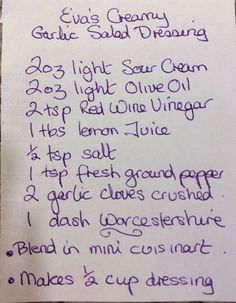 Eva's Creamy
Garlic Salad Dressing
2oz light Sour Cream
2oz light Olive Oil
2 tsp Red Wine Vinegar
1 tbs lemon Juice
½ tsp salt
1 tsp fresh ground pepper
2 garlic cloves crushed
1 dash Worcestershire
• Blend in mini cuisinart.
• Makes ½ cup dressing